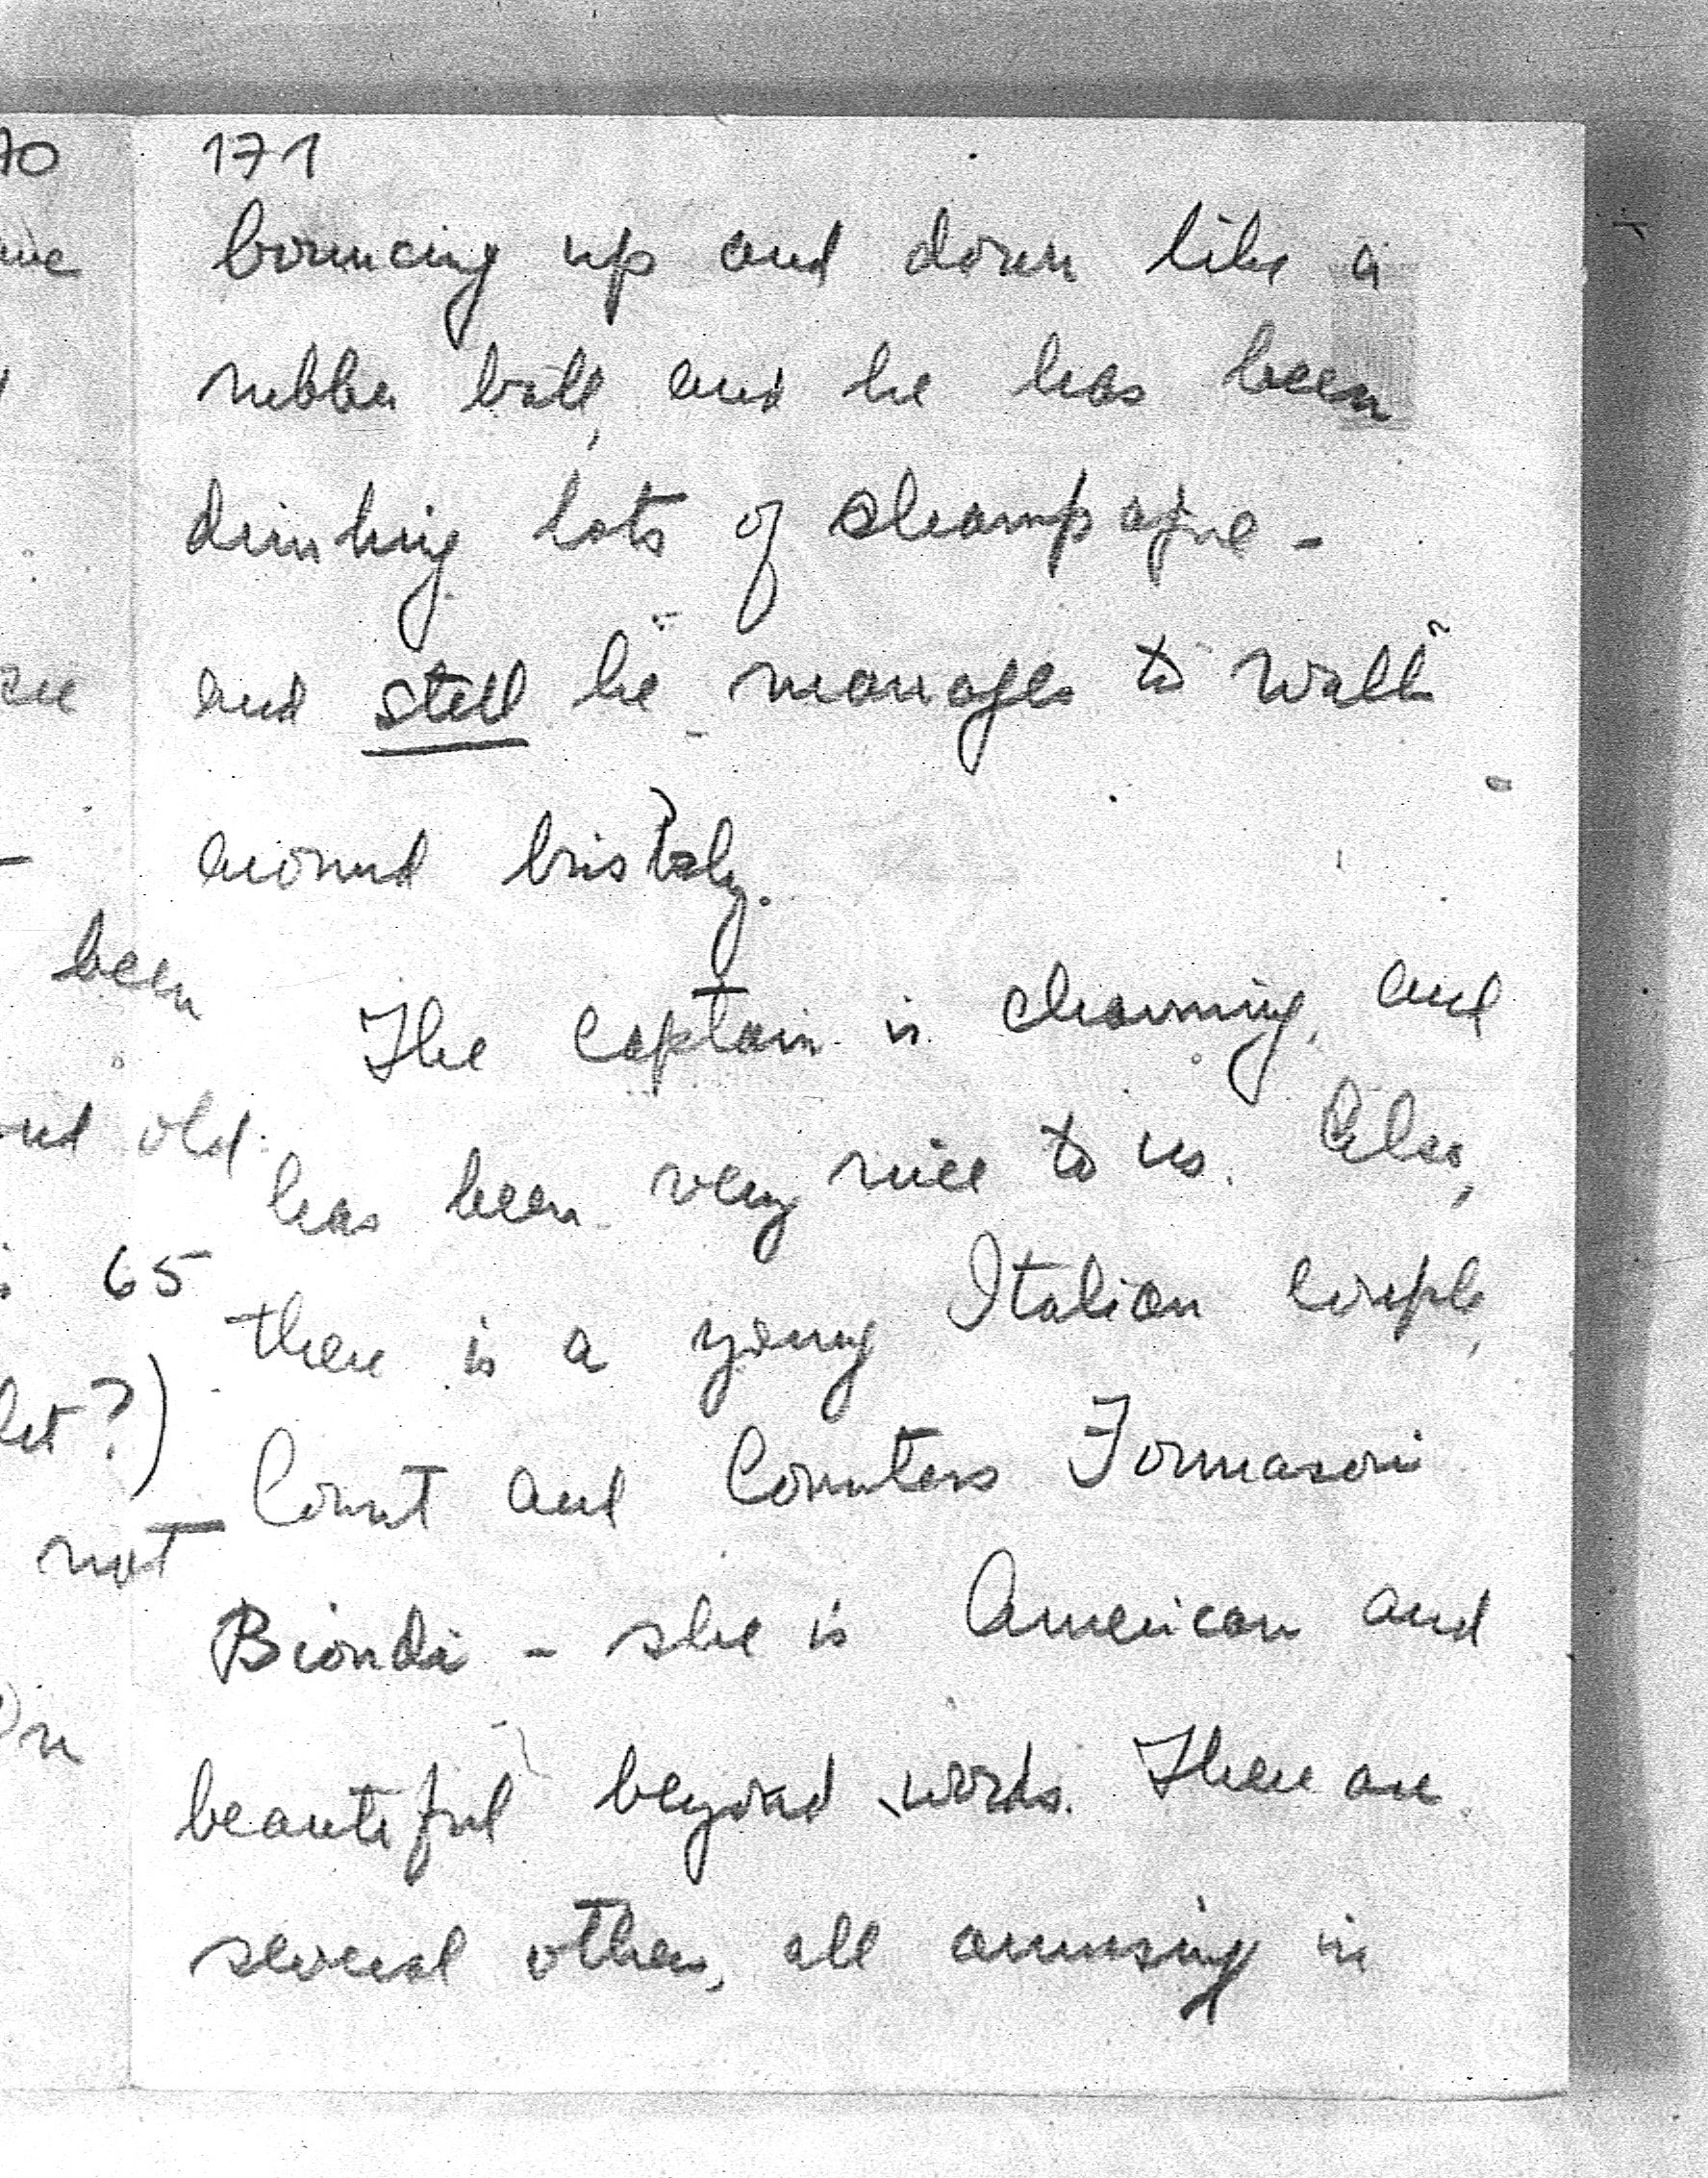 171
bouncing up and down like a
rubber ball, and he has been
drinking lots of champagne -
and still he manages to walk
around briskly.
The captain is charming, and
has been very nice to us. Also,
there is a young Italian couple,
Count and Countess Formasoni
Biondi - she is American and
beautiful beyond words. There are
several others, all amusing in
been
old.
65
not